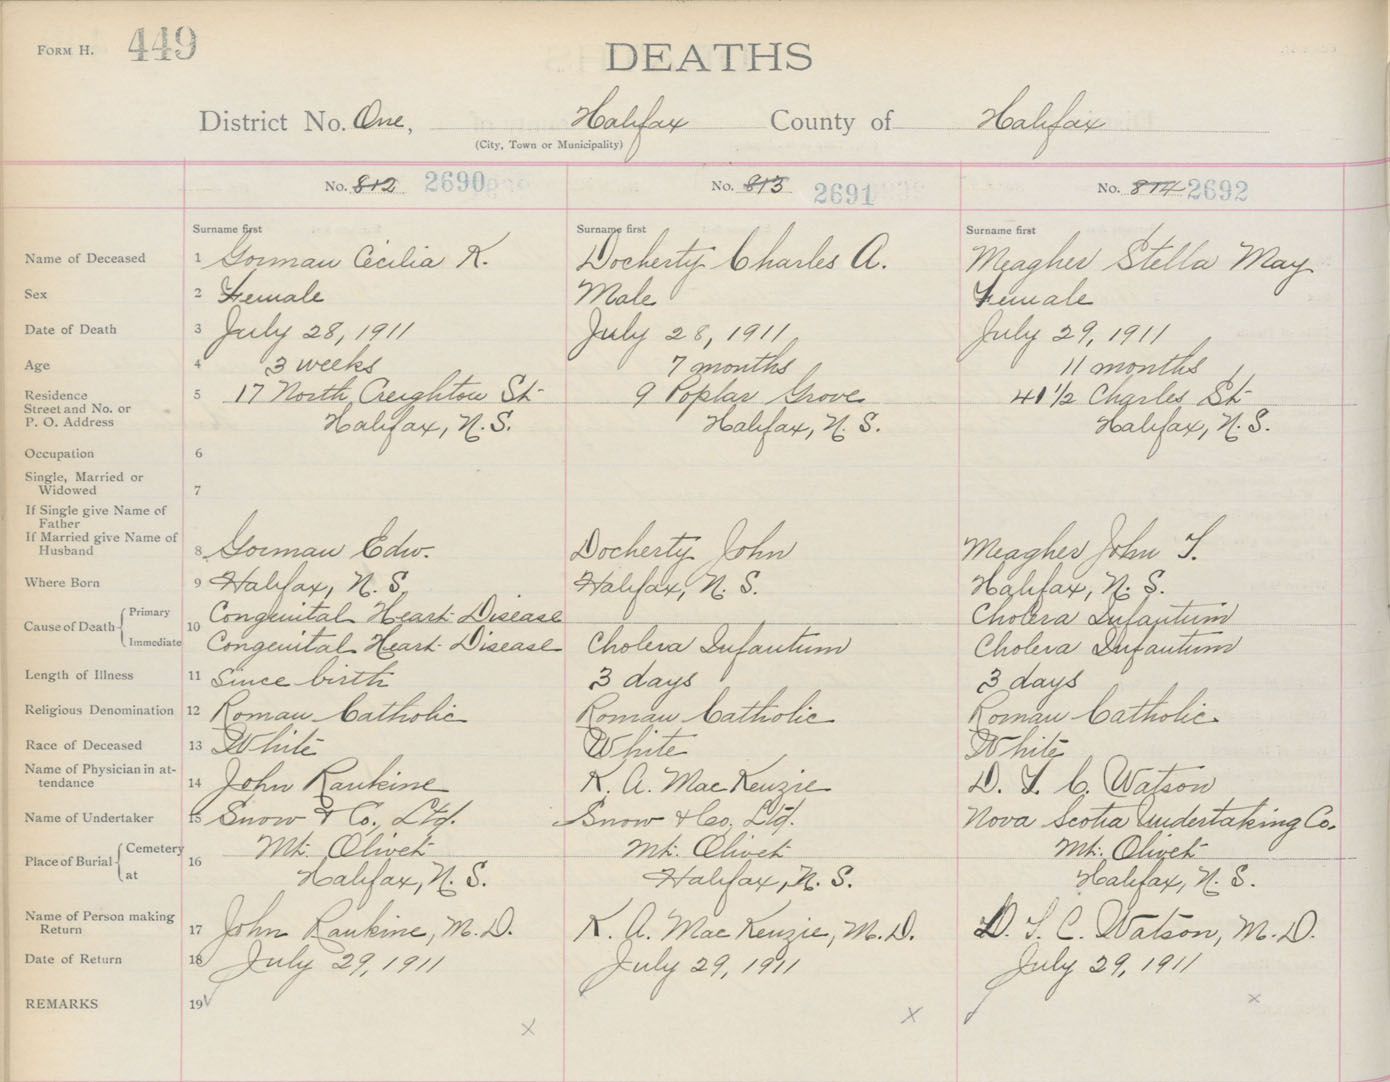 FORM H. 449
DEATHS
District No. One, Halifax County of Halifax
(City, Town or Municipality)
No. 812 2690 No. 813 2691 No. 814 2692
Surname first Surname first Surname first
Name of Deceased 1 Gorman Cecilia K. Docherty Charles A. Meagher Stella May
Sex 2 Female Male Female
Date of Death 3 July 28, 1911 July 28, 1911 July 29, 1911
Age 4 3 weeks 7 months 11 months
Residence 5 17 North Creighton St. 9 Poplar Grove 41 1/2 Charles St.
Street and No. or
P. O. Address Halifax, N. S. Halifax, N. S. Halifax, N. S.
Occupation 6
Single, Married or
Widowed 7
If Single give Name of
Father
If Married give Name of
Husband 8 Gorman Edw. Docherty John Meagher John T.
Where Born 9 Halifax, N. S. Halifax, N. S. Halifax, N. S.
Cause of Death Primary 10 Congenital Heart Disease Cholera Infantum
Immediate Congenital Heart Disease Cholera Infantum Cholera Infantum
Length of Illness 11 Since birth 3 days 3 days
Religious Denomination 12 Roman Catholic Roman Catholic Roman Catholic
Race of Deceased 13 White White White
Name of Physician in at-
tendance 14 John Rankine K. A. MacKenzie D. T. C. Watson
Name of Undertaker 15 Snow & Co., Ltd. Snow & Co, Ltd. Nova Scotia Undertaking Co.
Place of Burial Cemetery 16 Mt. Olivet Mt. Olivet Mt. Olivet
at Halifax, N. S. Halifax, N. S. Halifax, N. S.
Name of Person making
Return 17 John Rankine, M. D. K. A. MacKenzie, M. D. D. T. C. Watson, M. D.
Date of Return 18 July 29, 1911 July 29, 1911 July 29, 1911
REMARKS 19
x x x